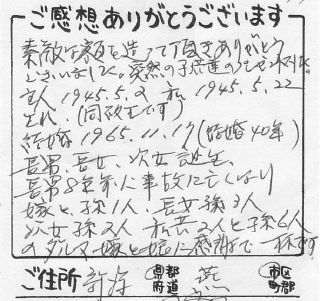 ご感想ありがとうございます
素敵な額を造って頂きありがとう
ございました。突然の子供達の
主人 1945.5.2 私 1945.5.22
生れ。(同級生です)
結婚 1965.11.17 (結婚40年)
長男、長女、次女誕生、
長男8年前に事故に亡くなり
嫁と、孫1人、長女孫3人
次女孫2人 私共2人と孫6人
のグルマ 嫁と娘に感謝で一杯です
ご住所 都道府県 燕 市区町郡